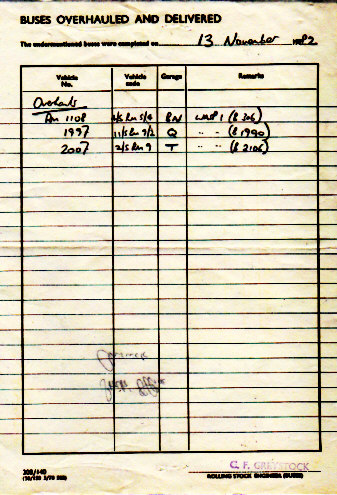 BUSES OVERHAULED AND DELIVERED
The undermentioned buses were completed on 13 November 1982
Vehicle No. Vehicle code Garage Remarks
Overhauls
Rm 1108 4/5 Rm 5/4 BN WRP1 (B 306)
1997 11/5 Rm 7/2 Q " " (B 1990)
2007 2/5 Rm 9 T " " (B 2106)
C. F. GREYSTOCK
ROLLING STOCK ENGINEER (BUSES)